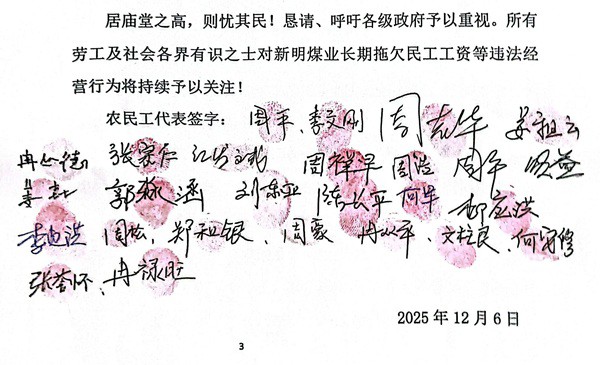 居庙堂之高，则忧其民！恳请、呼吁各级政府予以重视。所有
劳工及社会各界有识之士对新明煤业长期拖欠民工工资等违法经
营行为将持续予以关注！
农民工代表签字：周平、李文刚 周志华 姜祖云
张宗仁 周祥泽 周浩 周平
郭 涵 刘 长平 何华 应洪
李 洪 周松、郑和银、周蒙 冉 平、文柱民、何守修
张誉怀、冉禄旺
2025年12月6日
3